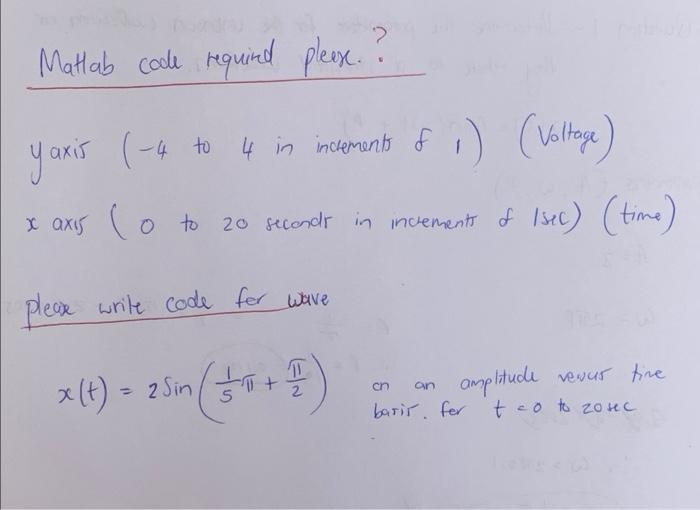 Matlab code required please.?
y axis (-4 to 4 in increments of 1) (Voltage)
x axis (0 to 20 seconds in increments of 1sec) (time)
please write code for wave
x(t) = 2 Sin(1/5 π + π/2) on an amplitude versus time
basis. for t = 0 to 20 sec